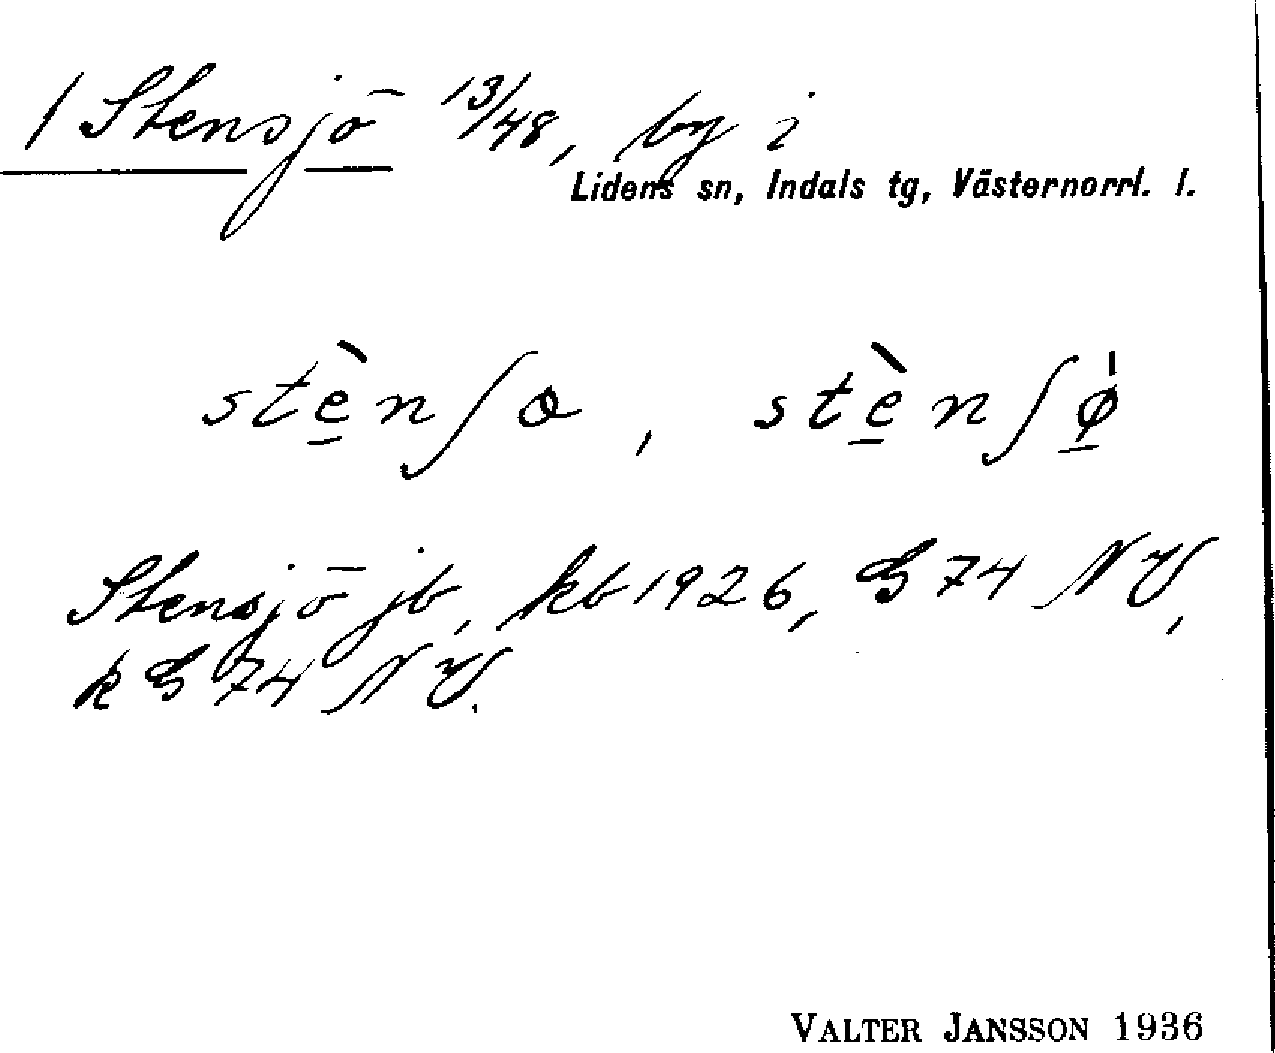 1 Stensjö 13/48, by i
Lidens sn, Indals tg, Västernorrl. l.
stè̱nʃɷ, stè̱nʃø̱̍
Stensjö jb, kb 1926, G 74 NV,
k G 74 NV.
VALTER JANSSON 1936